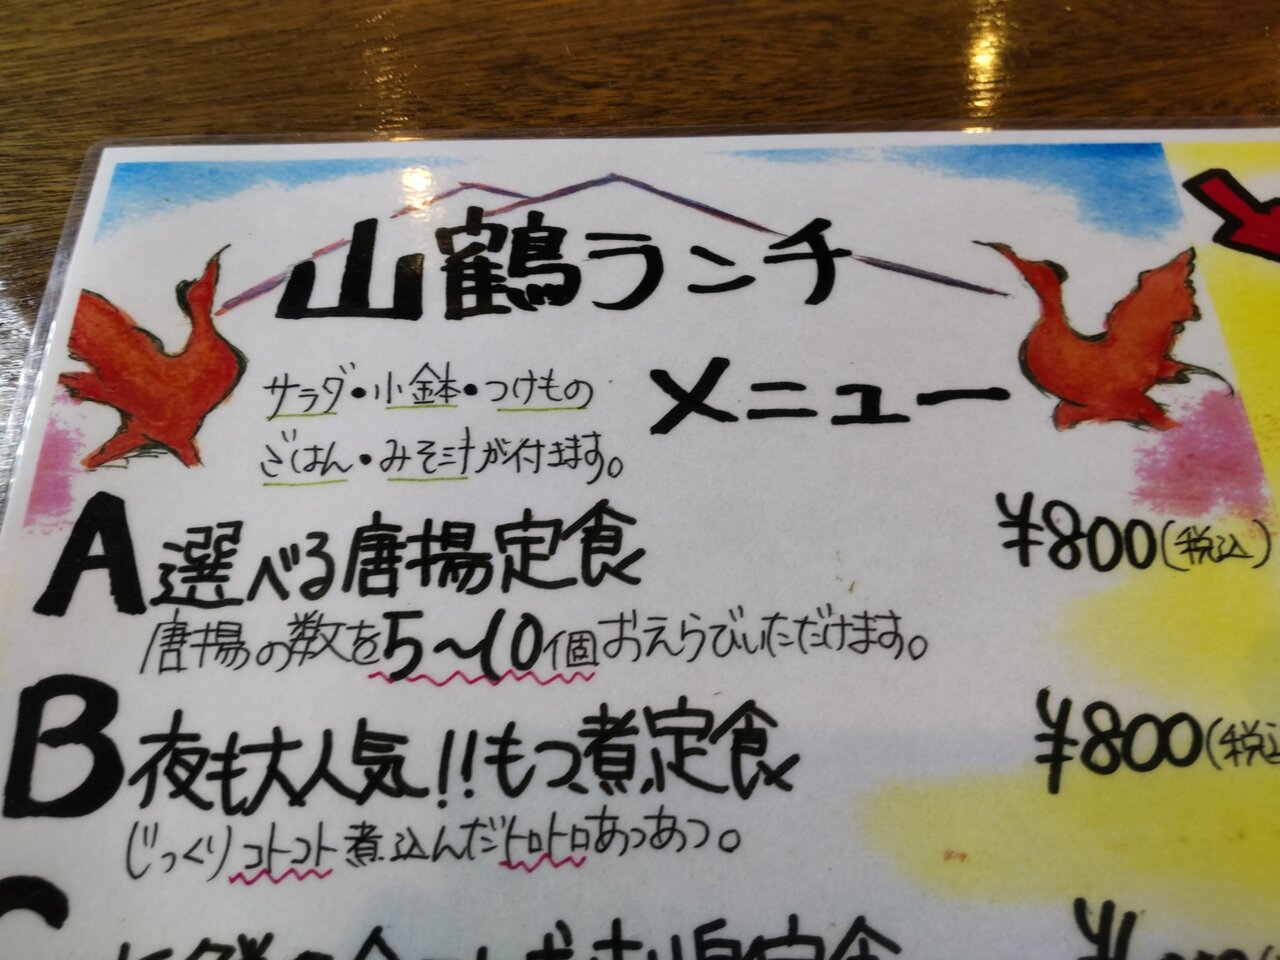 山鶴ランチ
メニュー
サラダ・小鉢・つけもの
ごはん・みそ汁が付きます。
A 選べる唐揚定食 ¥800(税込)
唐揚の数を5〜10個おえらびいただけます。
B 夜も大人気!!もつ煮定食 ¥800(税込
じっくりコトコト煮込んだトロトロあつあつ。
定食